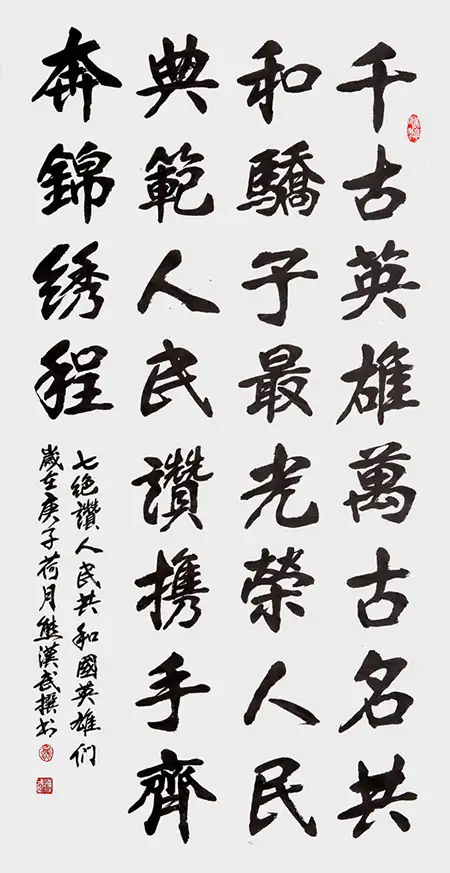 千古英雄萬古名共
和驕子最光榮人民
典範人民讚携手齊
奔錦绣程
七绝讚人民共和國英雄们
歲在庚子荷月熊漢武撰书